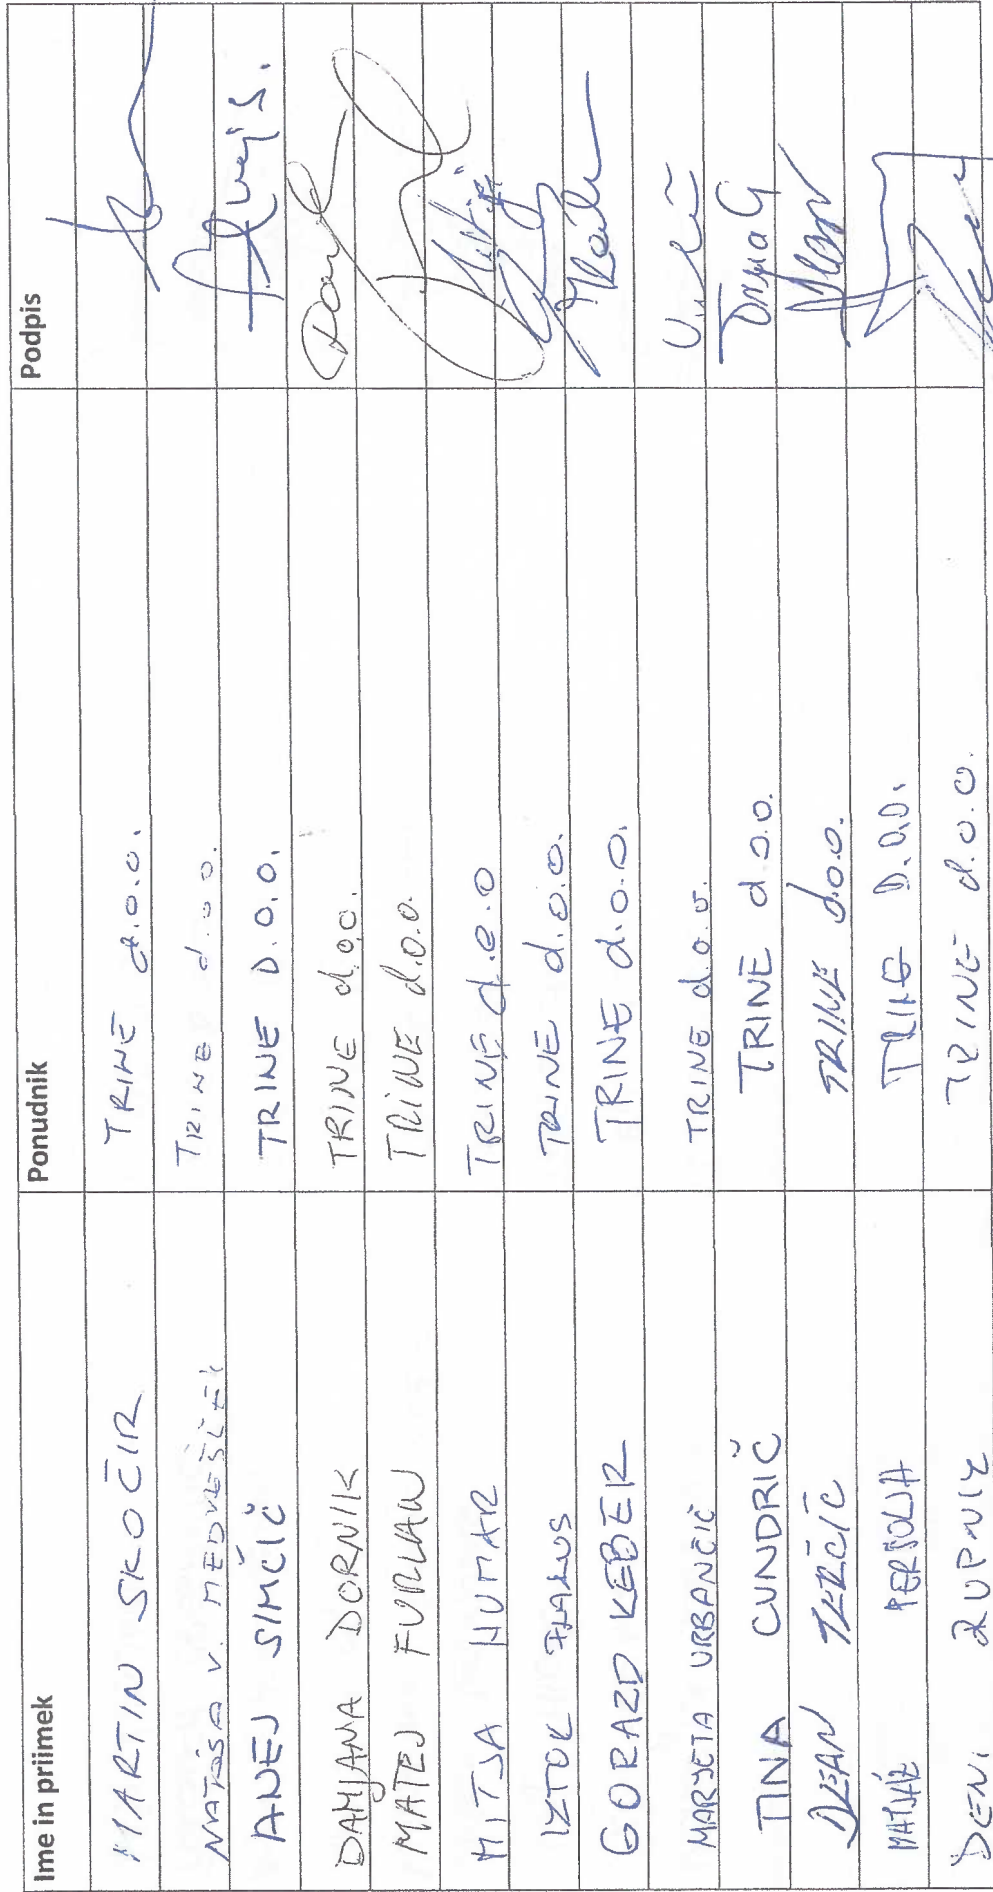 Ime in priimek Ponudnik Podpis
MARTIN SKOČIR TRINE d.o.o.
NATAŠA V. MEDVEŠČEK TRINE d.o.o.
ANEJ SIMČIČ TRINE D.O.O. Anej S.
DAMJANA DORNIK TRINE d.o.o.
MATEJ FURLAN TRINE d.o.o.
MITJA HUMAR TRINE d.o.o
IZTOK TRINE d.o.o.
GORAZD KEBER TRINE d.o.o.
MARJETA URBANČIČ TRINE d.o.o.
TINA CUNDRIČ TRINE d.o.o.
DEAN TERČIČ TRINE d.o.o.
MATJAŽ PERSOLJA TRINE D.O.O.
DENI RUPNIK TRINE d.o.o.